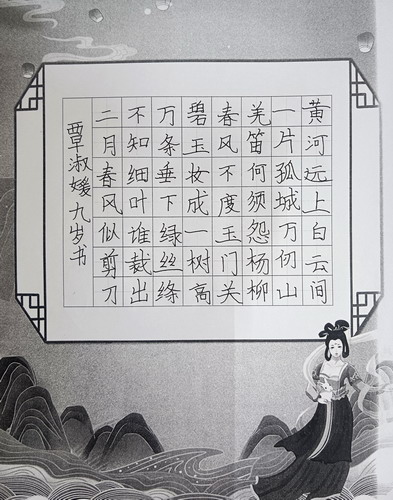 黄河远上白云间
一片孤城万仞山
羌笛何须怨杨柳
春风不度玉门关
碧玉妆成一树高
万条垂下绿丝绦
不知细叶谁裁出
二月春风似剪刀
覃淑媛九岁书